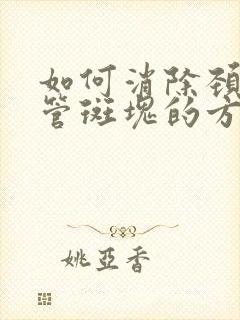 如何消除颈
管斑塊的方
姚亞香